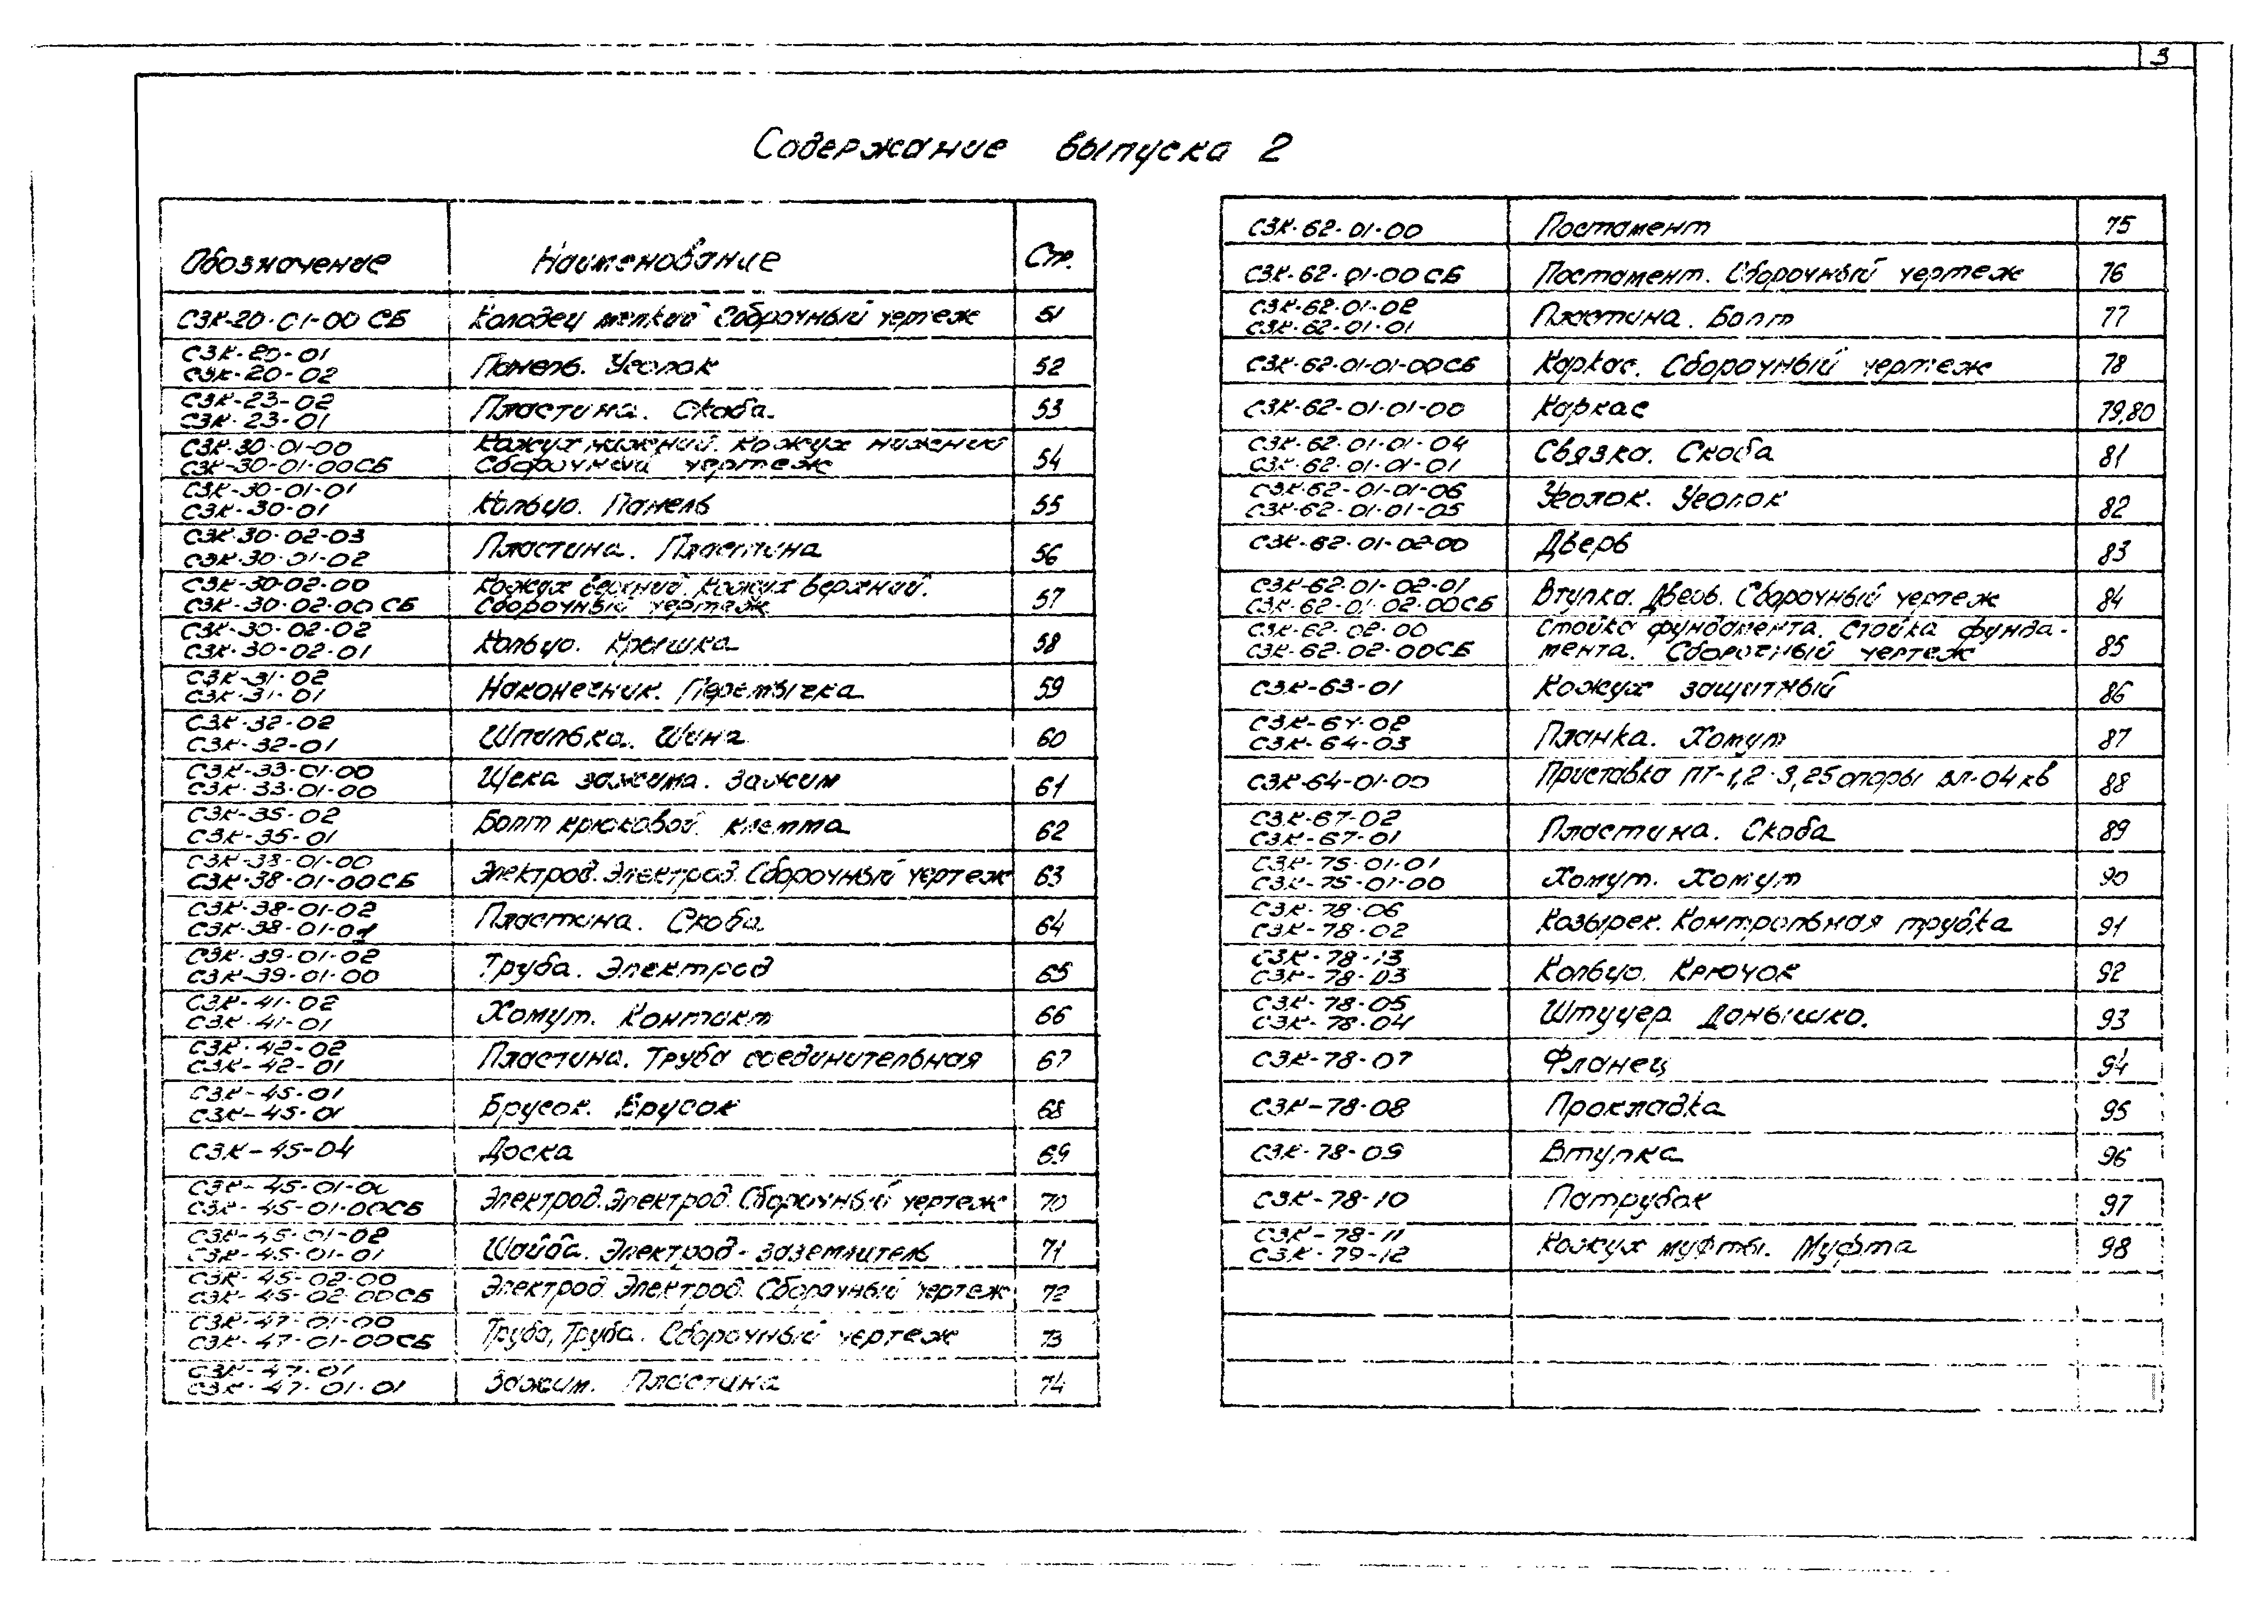 3
Содержание выпуска 2
Обозначение Наименование Стр.
СЗК-20-01-00 СБ Колодец мелкий Сборочный чертеж 51
СЗК-20-01
СЗК-20-02 Панель. Уголок 52
СЗК-23-02
СЗК-23-01 Пластина. Скоба. 53
СЗК-30-01-00 Кожух нижний. Кожух нижний
СЗК-30-01-00СБ Сборочный чертеж 54
СЗК-30-01-01
СЗК-30-01 Кольцо. Панель 55
СЗК-30-02-03
СЗК-30-01-02 Пластина. Пластина 56
СЗК-30-02-00 Кожух верхний. Кожух верхний.
СЗК-30-02-00 СБ Сборочный чертеж 57
СЗК-30-02-02
СЗК-30-02-01 Кольцо. Крышка 58
СЗК-31-02
СЗК-31-01 Наконечник. Перемычка 59
СЗК-32-02
СЗК-32-01 Шпилька. Шина 60
СЗК-33-01-00
СЗК-33-01-00 Щека зажима. Зажим 61
СЗК-35-02
СЗК-35-01 Болт крюковой. Клемма 62
СЗК-38-01-00
СЗК-38-01-00СБ Электрод. Электрод. Сборочный чертеж 63
СЗК-38-01-02
СЗК-38-01-01 Пластина. Скоба 64
СЗК-39-01-02
СЗК-39-01-00 Труба. Электрод 65
СЗК-41-02
СЗК-41-01 Хомут. Контакт 66
СЗК-42-02
СЗК-42-01 Пластина. Труба соединительная 67
СЗК-45-01
СЗК-45-01 Брусок. Брусок 68
СЗК-45-04 Доска 69
СЗК-45-01-00
СЗК-45-01-00СБ Электрод. Электрод. Сборочный чертеж 70
СЗК-45-01-02
СЗК-45-01-01 Шайба. Электрод-заземлитель 71
СЗК-45-02-00
СЗК-45-02-00СБ Электрод. Электрод. Сборочный чертеж 72
СЗК-47-01-00
СЗК-47-01-00СБ Труба, Труба. Сборочный чертеж 73
СЗК-47-01
СЗК-47-01-01 Зажим. Пластина 74
СЗК-62-01-00 Постамент 75
СЗК-62-01-00СБ Постамент. Сборочный чертеж 76
СЗК-62-01-02
СЗК-62-01-01 Пластина. Болт 77
СЗК-62-01-01-00СБ Каркас. Сборочный чертеж 78
СЗК-62-01-01-00 Каркас 79,80
СЗК-62-01-01-04
СЗК-62-01-01-01 Связка. Скоба 81
СЗК-62-01-01-06
СЗК-62-01-01-05 Уголок. Уголок 82
СЗК-62-01-02-00 Дверь 83
СЗК-62-01-02-01
СЗК-62-01-02-00СБ Втулка. Дверь. Сборочный чертеж 84
СЗК-62-02-00 Стойка фундамента. Стойка фунда-
СЗК-62-02-00СБ мента. Сборочный чертеж 85
СЗК-63-01 Кожух защитный 86
СЗК-64-02
СЗК-64-03 Планка. Хомут 87
СЗК-64-01-00 Приставка ПТ-1,2-3,25 опоры ВЛ-04 кв 88
СЗК-67-02
СЗК-67-01 Пластина. Скоба 89
СЗК-75-01-01
СЗК-75-01-00 Хомут. Хомут 90
СЗК-78-06
СЗК-78-02 Козырек. Контрольная трубка 91
СЗК-78-13
СЗК-78-03 Кольцо. Крючок 92
СЗК-78-05
СЗК-78-04 Штуцер Донышко. 93
СЗК-78-07 Фланец 94
СЗК-78-08 Прокладка 95
СЗК-78-09 Втулка 96
СЗК-78-10 Патрубок 97
СЗК-78-11
СЗК-79-12 Кожух муфты. Муфта 98